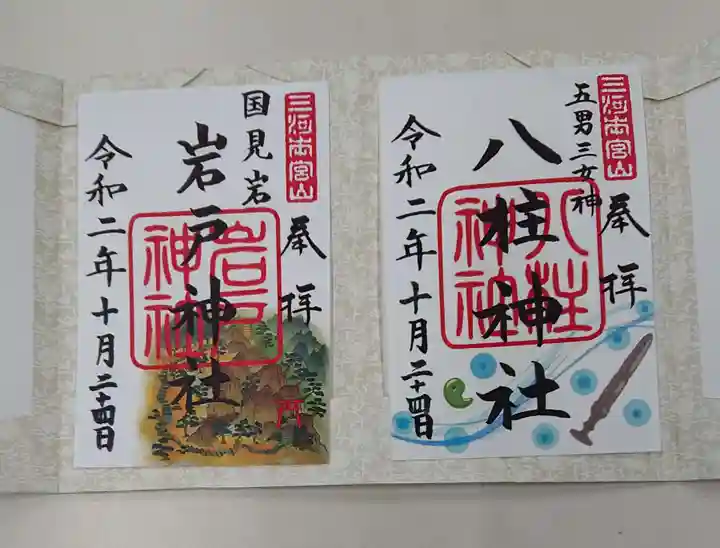 三河本宮山
五男三女神
奉拝
八柱神社
八柱神社
令和二年十月二十四日
三河本宮山
国見岩
奉拝
岩戸神社
岩戸神社
令和二年十月二十四日